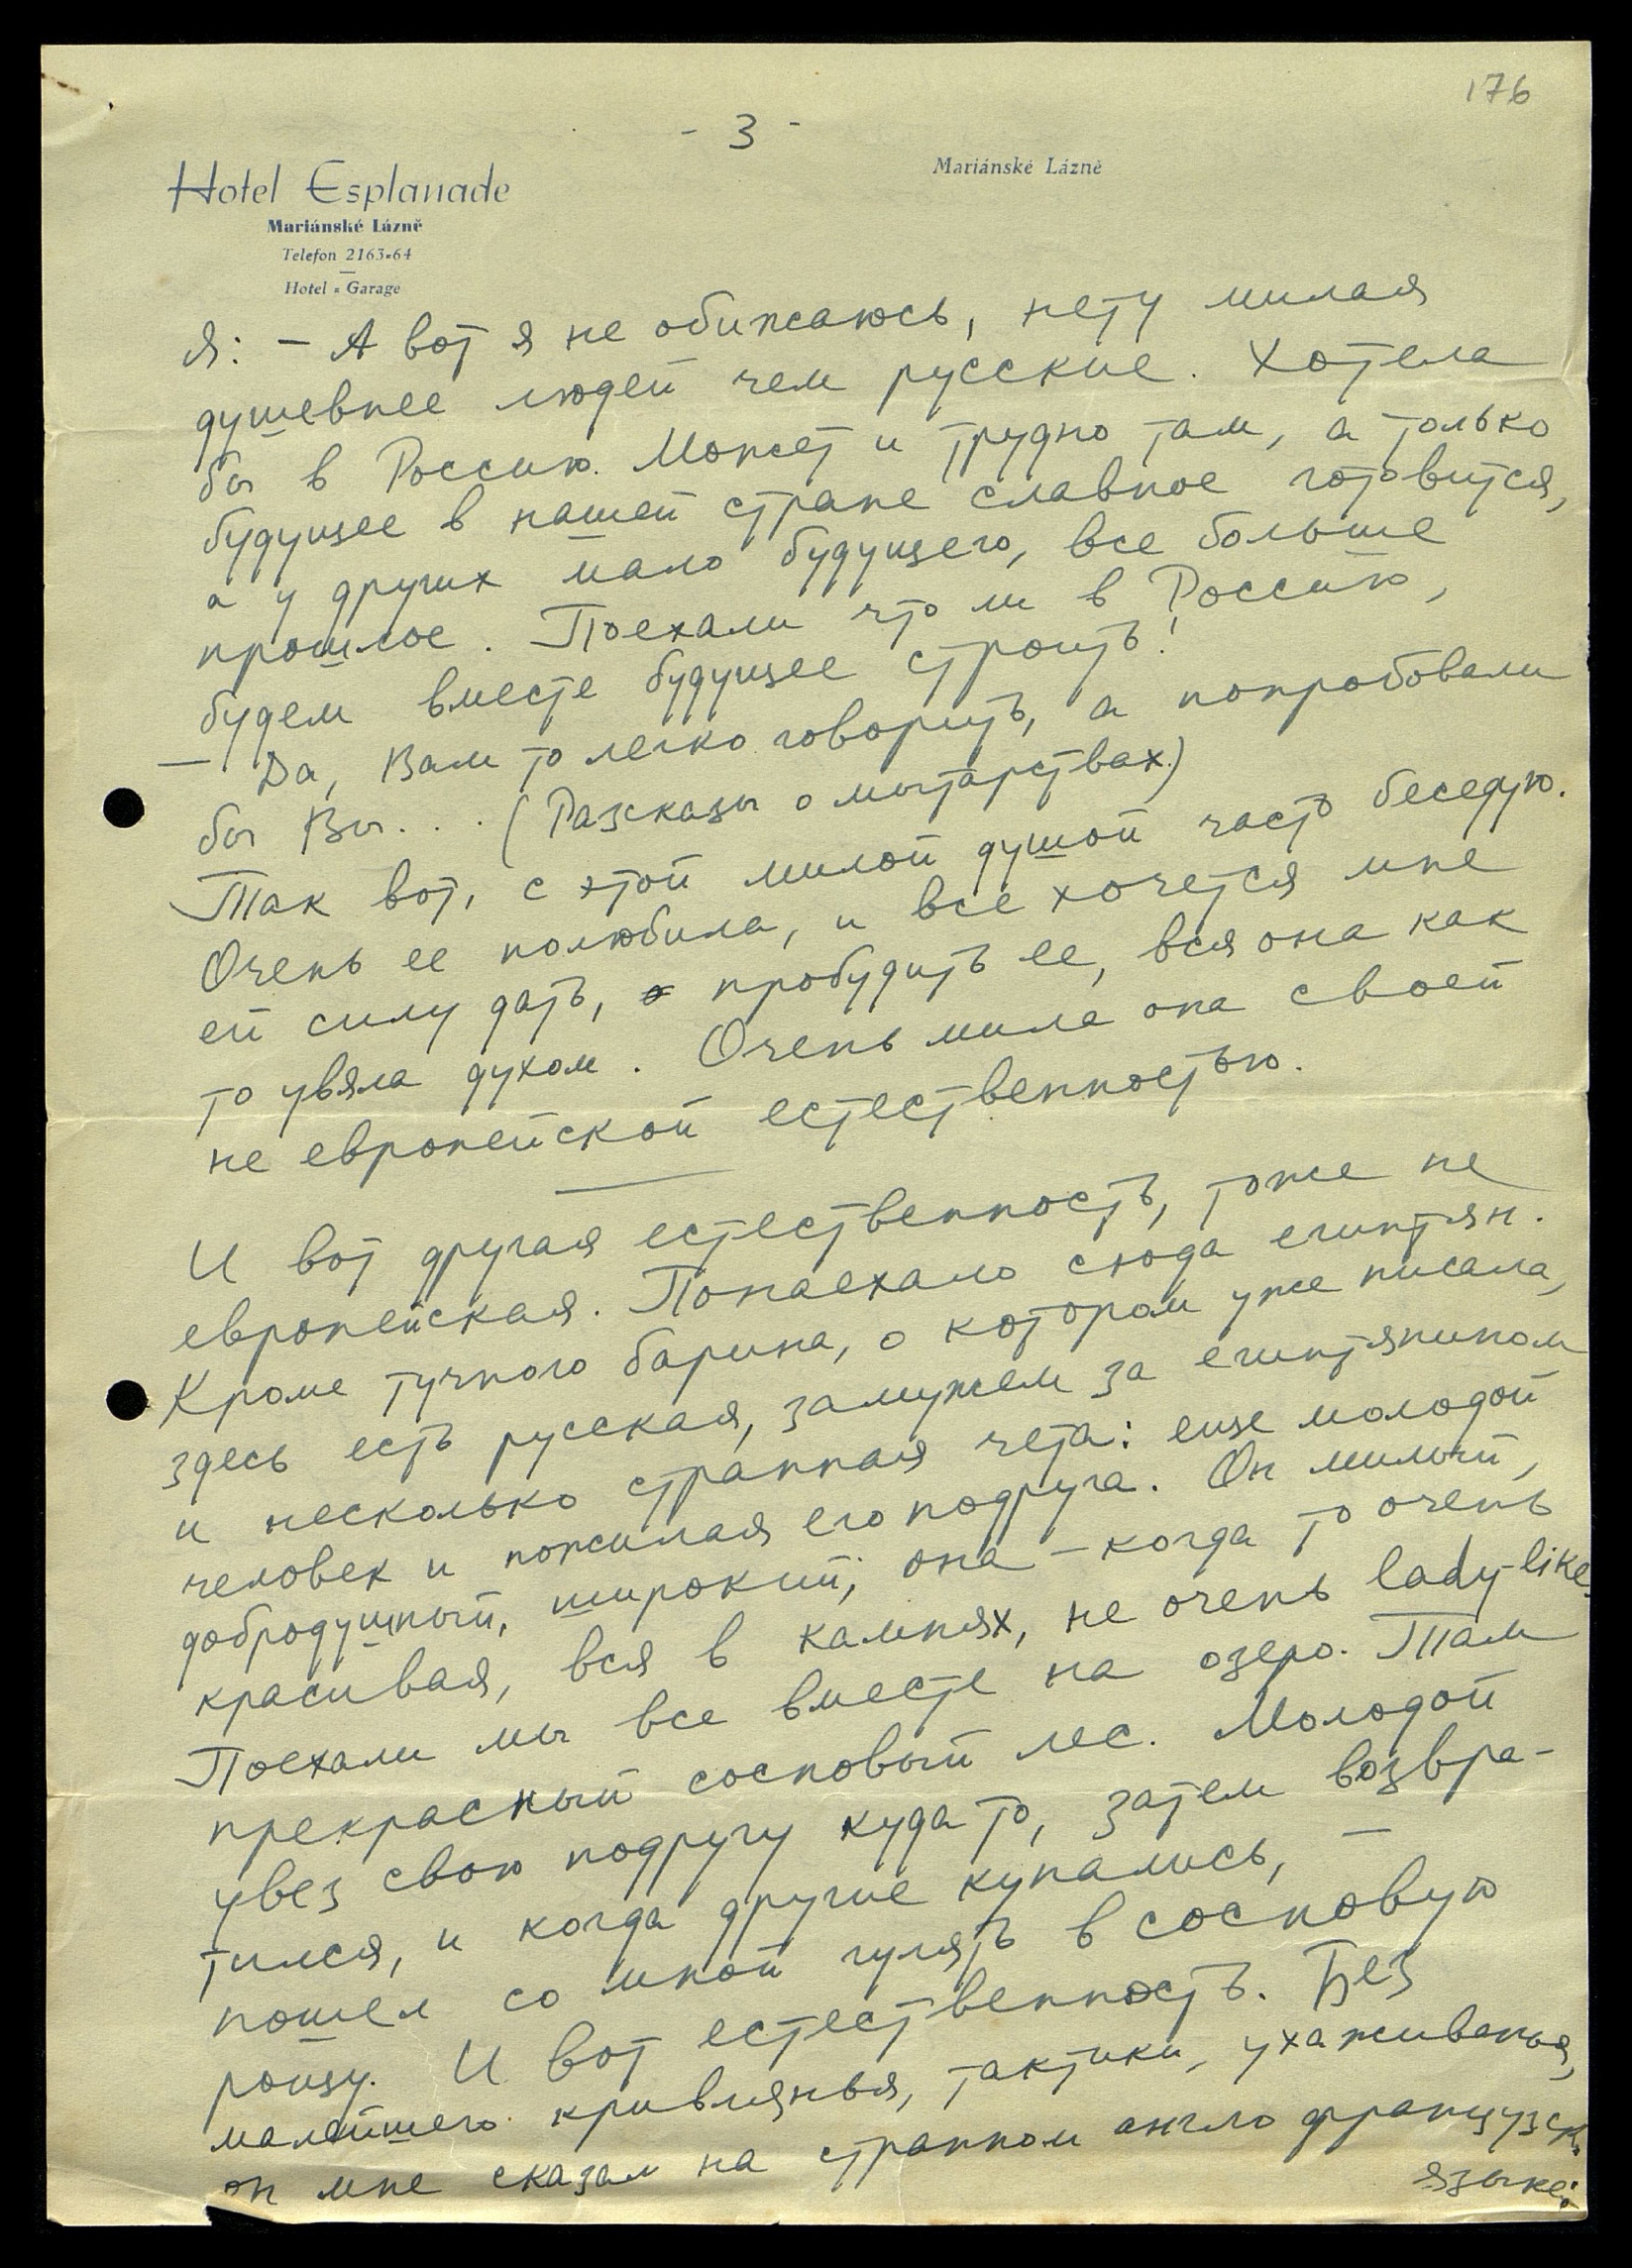 176
- 3 -
Mariánské Lázně
Hotel Esplanade
Mariánské Lázně
Telefon 2163-64
Hotel - Garage
Я: – А вот я не обижаюсь, нету милая
душевнее людей чем русские. Хотела
бы в Россию. Может и трудно там, а только
будущее в нашей стране славное готовится,
а у других мало будущего, все больше
прошлое. Поехали что ли в Россию,
будем вместе будущее строить!
– Да, Вам то легко говорить, а попробовали
бы Вы... (Разсказы о мытарствах.)
Так вот, с этой милой душой часто беседую.
Очень ее полюбила, и все хочется мне
ей силу дать, пробудить ее, вся она как
то увяла духом. Очень мила она своей
не европейской естественностью.
И вот другая естественность, тоже не
европейская. Понаехало сюда египтян.
Кроме тучного барина, о котором уже писала,
здесь есть русская, замужем за египтянином
и несколько странная чета: еще молодой
человек и пожилая его подруга. Он милый,
добродушный, широкий, она – когда то очень
красивая, вся в камнях, не очень lady-like.
Поехали мы все вместе на озеро. Там
прекрасный сосновый лес. Молодой
увез свою подругу куда то, затем возвра-
тился, и когда другие купались, –
пошел со мной гулять в сосновую
рощу. И вот естественность. Без
малейшего кривлянья, тактики, ухаживанья,
он мне сказал на странном англо французск.
языке: